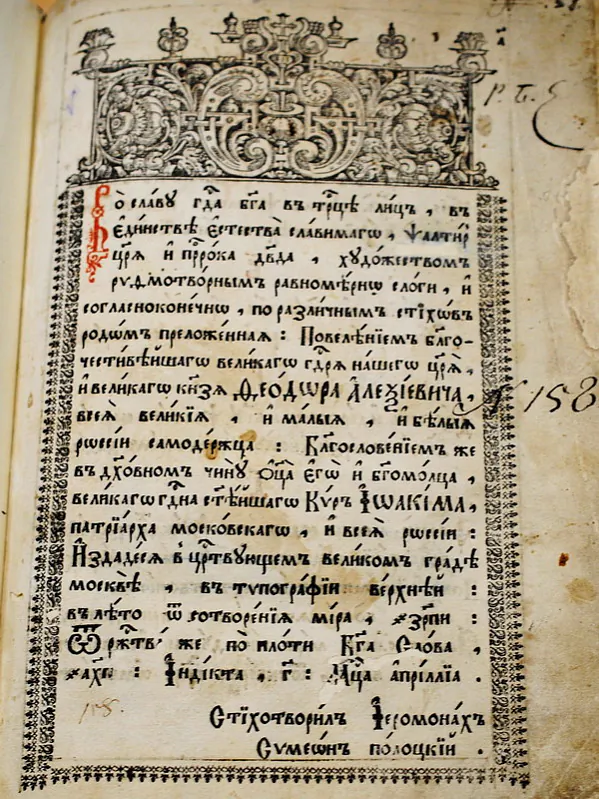 Во сла́ву гд҇а бг҃а въ трⷪ҇цѣ лицъ , въ
є҆ди́нствѣ є҆стества̀ сла́вимагѡ , ѱалти́рь
цр҃ѧ̀ и҆ прⷪ҇ро́ка дв҃да , хꙋдо́жествомъ
рѵѳмотво́рнымъ равномѣ́рнѡ сло́ги , и҆
согласноконе́чнѡ , по разли́чнымъ стїхѡ́въ
родѡ́мъ преложе́нная : Повелѣ́нїемъ бл҃го-
чести́вѣйшагѡ вели́кагѡ гдⷭ҇рѧ на́шегѡ цр҃ѧ̀ ,
и҆ вели́кагѡ кн҃зѧ Ѳео́дѡра А҆леѯі́евича ,
всеѧ̀ вели́кїѧ , и҆ ма́лыѧ , и҆ бѣ́лыѧ
рѡссі́и самоде́ржца : Бл҃гослове́нїемъ же
въ дх҃о́вномъ чи́нꙋ ѻ҆ц҃а̀ є҆гѡ̀ и҆ бг҃омо́лца ,
вели́кагѡ гдⷭ҇и́на ст҃ѣ́йшагѡ Кѵ́ръ І҆ѡакі́ма ,
патрїа́рха моско́вскагѡ , и҆ всеѧ̀ рѡссі́и :
И҆зда́десѧ в црⷭ҇твꙋющемъ вели́комъ гра́дѣ
москвѣ̀ , въ тѵпогра́фїи ве́рхнѣй :
въ лѣ́то ѿ сотворе́нїѧ мі́ра , ҂зр҃пи :
Ѿ ржⷭ҇тва́ же по пло́ти Бг҃а Сло́ва ,
҂ах҃п : І҆ндїкта , г҃ : Мцⷭ҇а а҆прі́ллїа .
Стїхотвори́лъ І҆еромона́хъ
Сѵмеѡ́нъ по́лоцкїй .
№ 158
158.